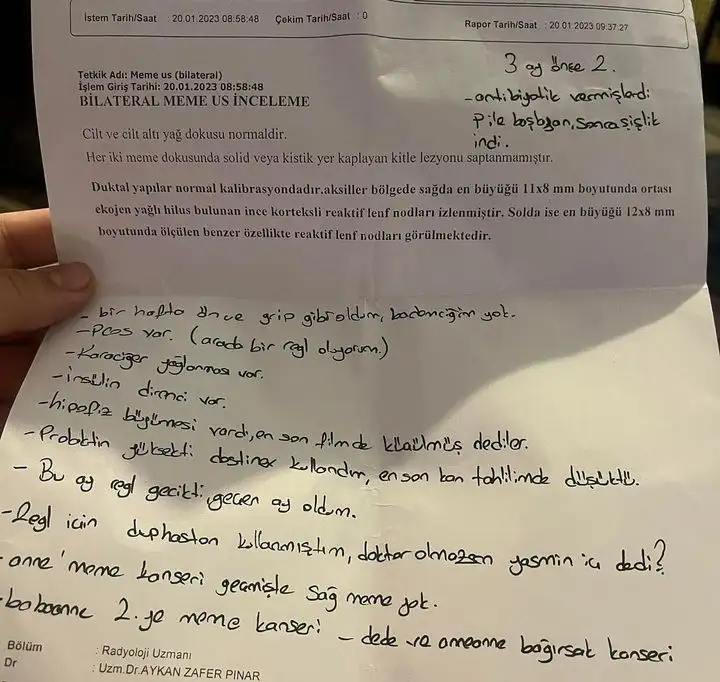 İstem Tarih/Saat : 20.01.2023 08:58:48 Çekim Tarih/Saat : 0
Rapor Tarih/Saat : 20.01.2023 09:37:27
3 ay önce 2.
- antibiyotik vermişlerdi
Tetkik Adı: Meme us (bilateral)
İşlem Giriş Tarihi: 20.01.2023 08:58:48
BİLATERAL MEME US İNCELEME
sonra şişlik
indi.
Cilt ve cilt altı yağ dokusu normaldir.
Her iki meme dokusunda solid veya kistik yer kaplayan kitle lezyonu saptanmamıştır.
Duktal yapılar normal kalibrasyondadır.aksiller bölgede sağda en büyüğü 11x8 mm boyutunda ortası
ekojen yağlı hilus bulunan ince korteksli reaktif lenf nodları izlenmiştir. Solda ise en büyüğü 12x8 mm
boyutunda ölçülen benzer özellikte reaktif lenf nodları görülmektedir.
- bir hafta önce grip gibi oldum, bademciğim yok.
- PCOS var. (arada bir regl oluyorum.)
- Karaciğer yağlanması var.
- insülin direnci var.
- hipofiz büyümesi vardı, en son filmde küçülmüş dediler.
- Prolaktin yüksekti dostinex kullandım, en son kan tahlilimde düşüktü.
- Bu ay regl gecikti, geçen ay oldum.
- Regl için duphaston kullanmıştım, doktor olmazsan yasmin iç dedi?
- anne' meme kanseri geçmişte sağ meme yok.
- babaanne 2. ye meme kanseri - dede ve anneanne bağırsak kanseri
Bölüm : Radyoloji Uzmanı
Dr : Uzm.Dr.AYKAN ZAFER PINAR